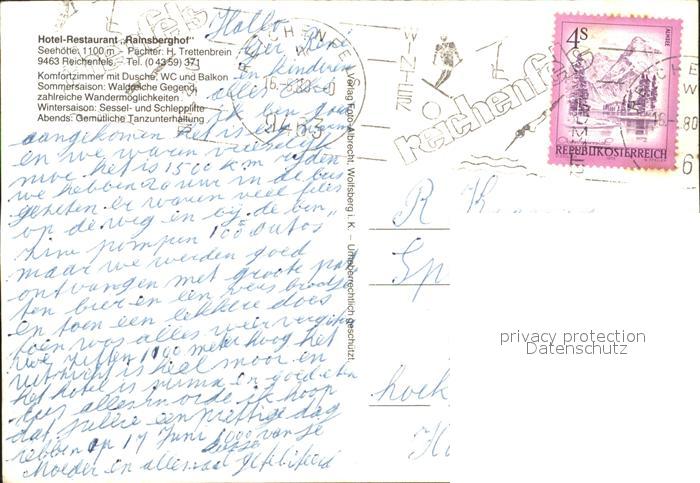 Hotel-Restaurant „Rainsberghof“
Seehöhe 1100 m – Pächter: H. Trettenbrein
9463 Reichenfels, Tel. (0 43 59) 371
Komfortzimmer mit Dusche, WC und Balkon
Sommersaison: Waldreiche Gegend,
zahlreiche Wandermöglichkeiten
Wintersaison: Sessel- und Schlepplifte
Abends: Gemütliche Tanzunterhaltung
Hallo
Ger René
en kinderen
alles
ik ben goed
aangekomen het is een
en we waren
moe het is 1500 km rijden
we hebben 20 uur in de bus
gezeten er waren veel files
op de weg en bij de ben
zine pompen 100 autos
maar we werden goed
ontvangen met groote pot
ten bier en een vers broodje
en toen een lekkere does
toen was alles weer vergeten
we zitten 1100 meter hoog het
uitzicht is heel mooi en
het hotel is ruim en goed eten
dus alles in orde ik hoop
dat jullie een prettige dag
hebben op 17 Juni 1000
Moeder en allemaal gefeliciteerd
Verlag Foto Albrecht, Wolfsberg i. K. – Urheberrechtlich geschützt.
WINTER
reichenfels
9463
4 S
ALMSEE
REPUBLIK ÖSTERREICH
R
hoek
privacy protection
Datenschutz